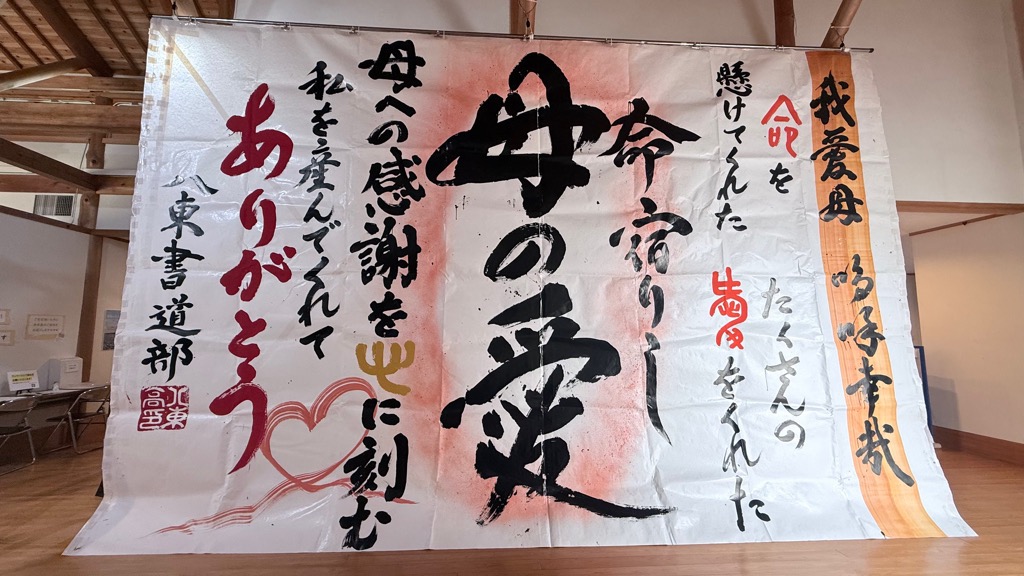 我愛母 嗚呼幸哉
命を
懸けてくれた
たくさんの
愛をくれた
命宿りし
母の愛
母への感謝を心に刻む
私を産んでくれて
ありがとう
八東書道部
八東高印